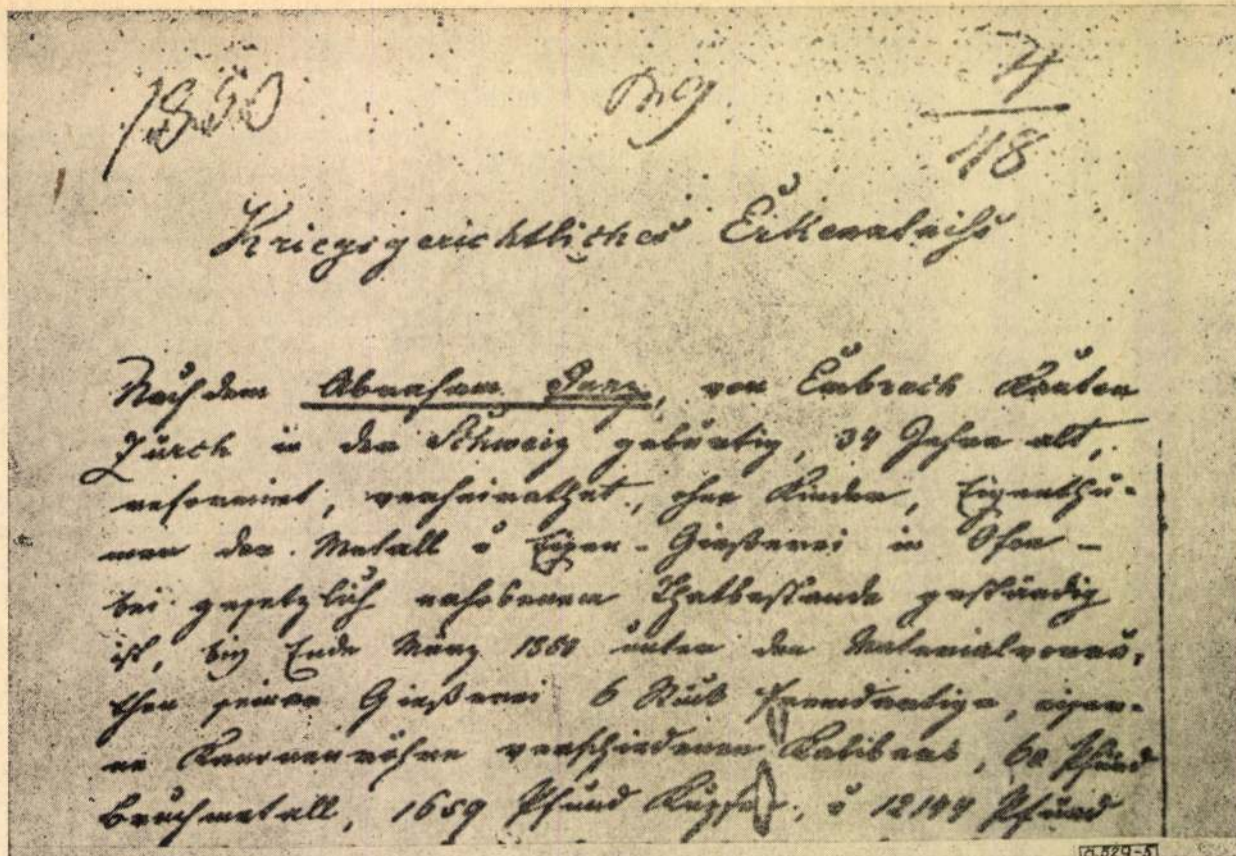 1850
4
48
Kriegsgerichtliches Erkenntniß
Nachdem Abraham Ganz, von Embrach Kanton
Zürch in der Schweiz gebürtig, 34 Jahre alt,
reformirt, verheirathet, ohne Kinder, Eigenthü-
mer der Metall u Eisen-Gießerei in Ofen –
bei gesetzlich erhobenem Thatbestande geständig
ist, bis Ende März 1850 unter den Materialvorrä-
then seiner Gießerei 6 Stück fremdartige, eiser-
ne Kanonenröhre verschiedenen Kalibers, 60 Pfund
Bruchmetall, 1659 Pfund Kupfer, u 12144 Pfund